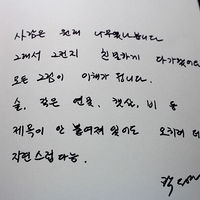 사람은 원래 나무였나봅니다
그래서 그런지 친밀하게 다가왔어요
모든 그림이 이해가 됩니다.
숲, 작은 연못, 햇살, 비 등
제목이 안 붙여져 있어도 오히려 더
자연스럽다능.